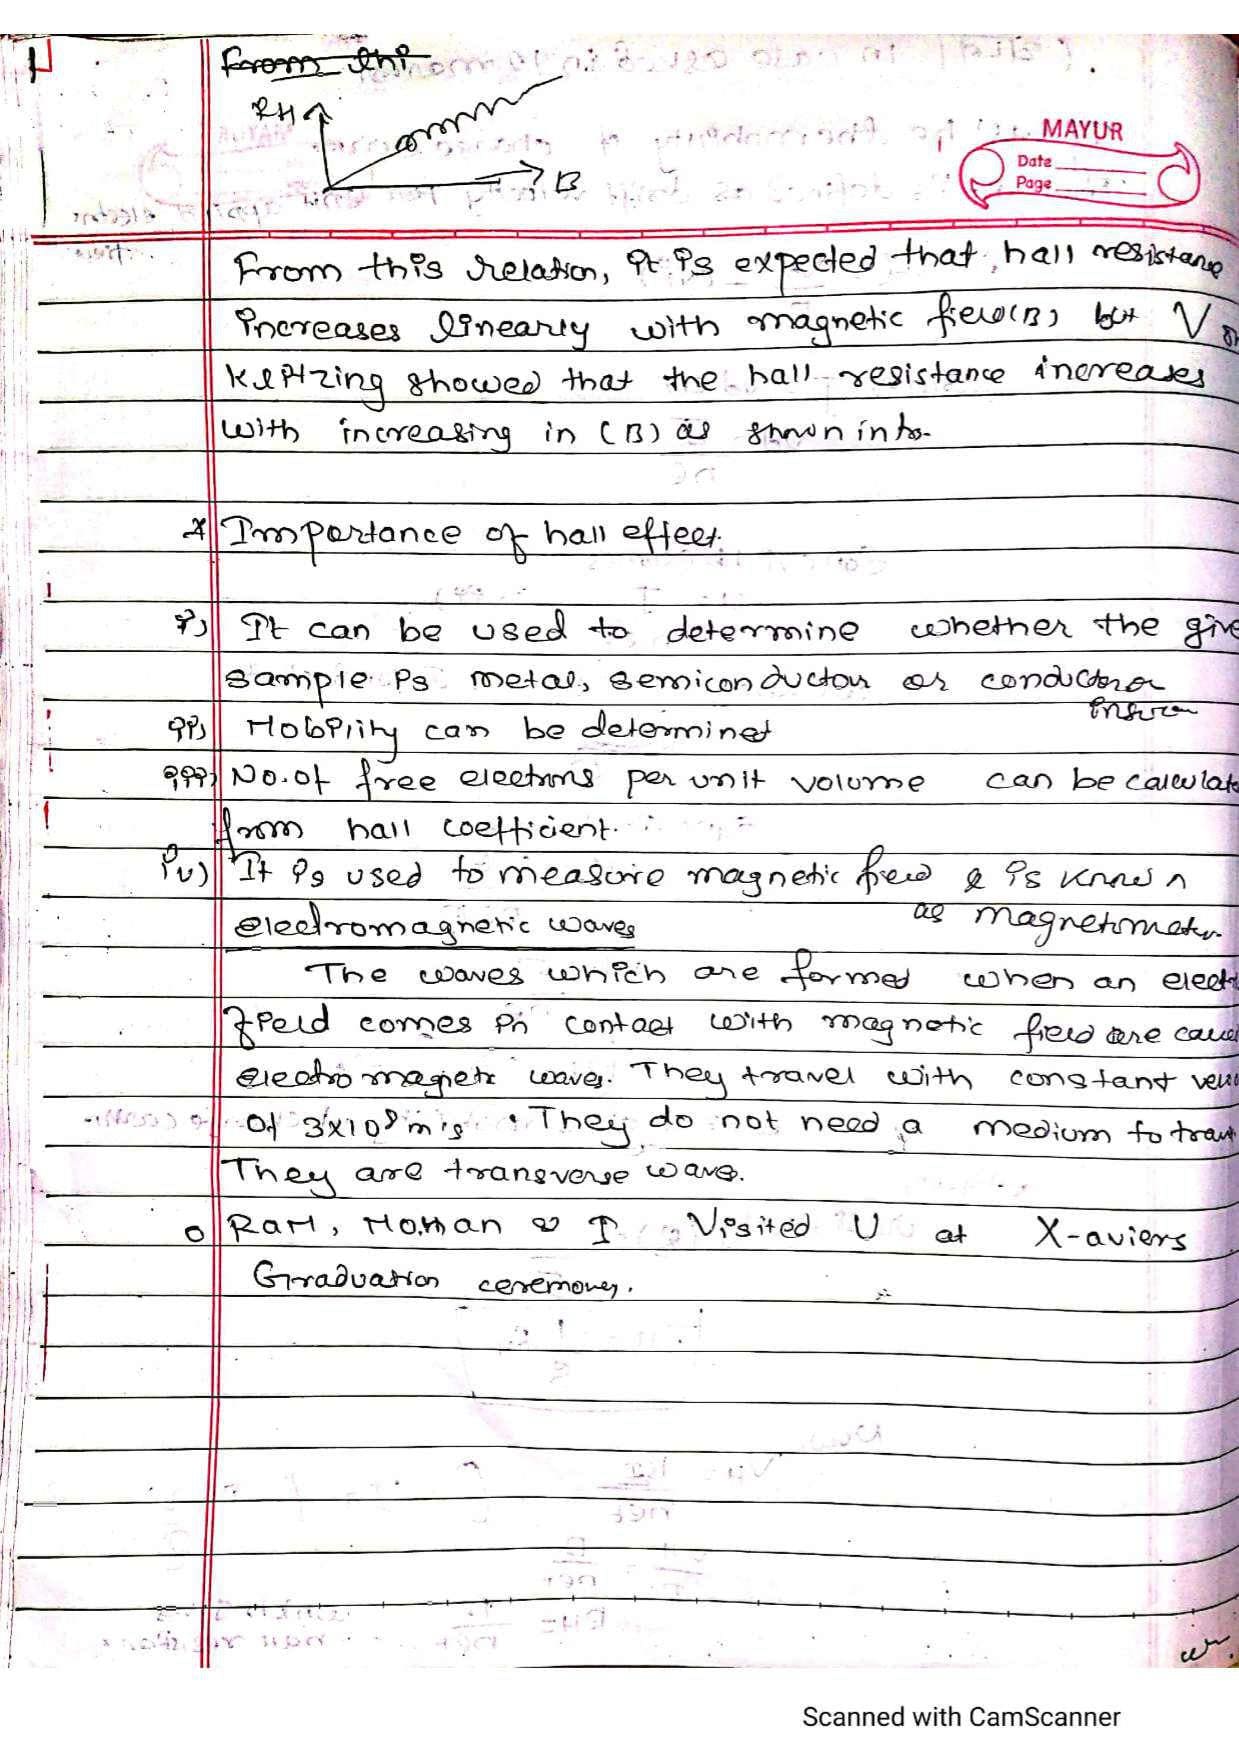 From thi
RH
B
MAYUR
Date
Page
From this relation, it is expected that hall resistance
increases linearly with magnetic field (B) but V on
Klitzing showed that the hall resistance increases
with increasing in (B) as shown in
* Importance of hall effect.
i) It can be used to determine whether the give
sample is metal, semiconductor or conductor
ii) Mobility can be determined
iii) No. of free electrons per unit volume can be calculate
from hall coefficient.
iv) It is used to measure magnetic field & is known
as magnetometer.
electromagnetic waves
The waves which are formed when an elect
field comes in contact with magnetic field are
electromagnetic waves. They travel with constant
of 3x10⁸ m/s. They do not need a medium to
They are transverse wave.
o RaM, Mohan & I Visited U at X-aviers
Graduation ceremony.
Scanned with CamScanner